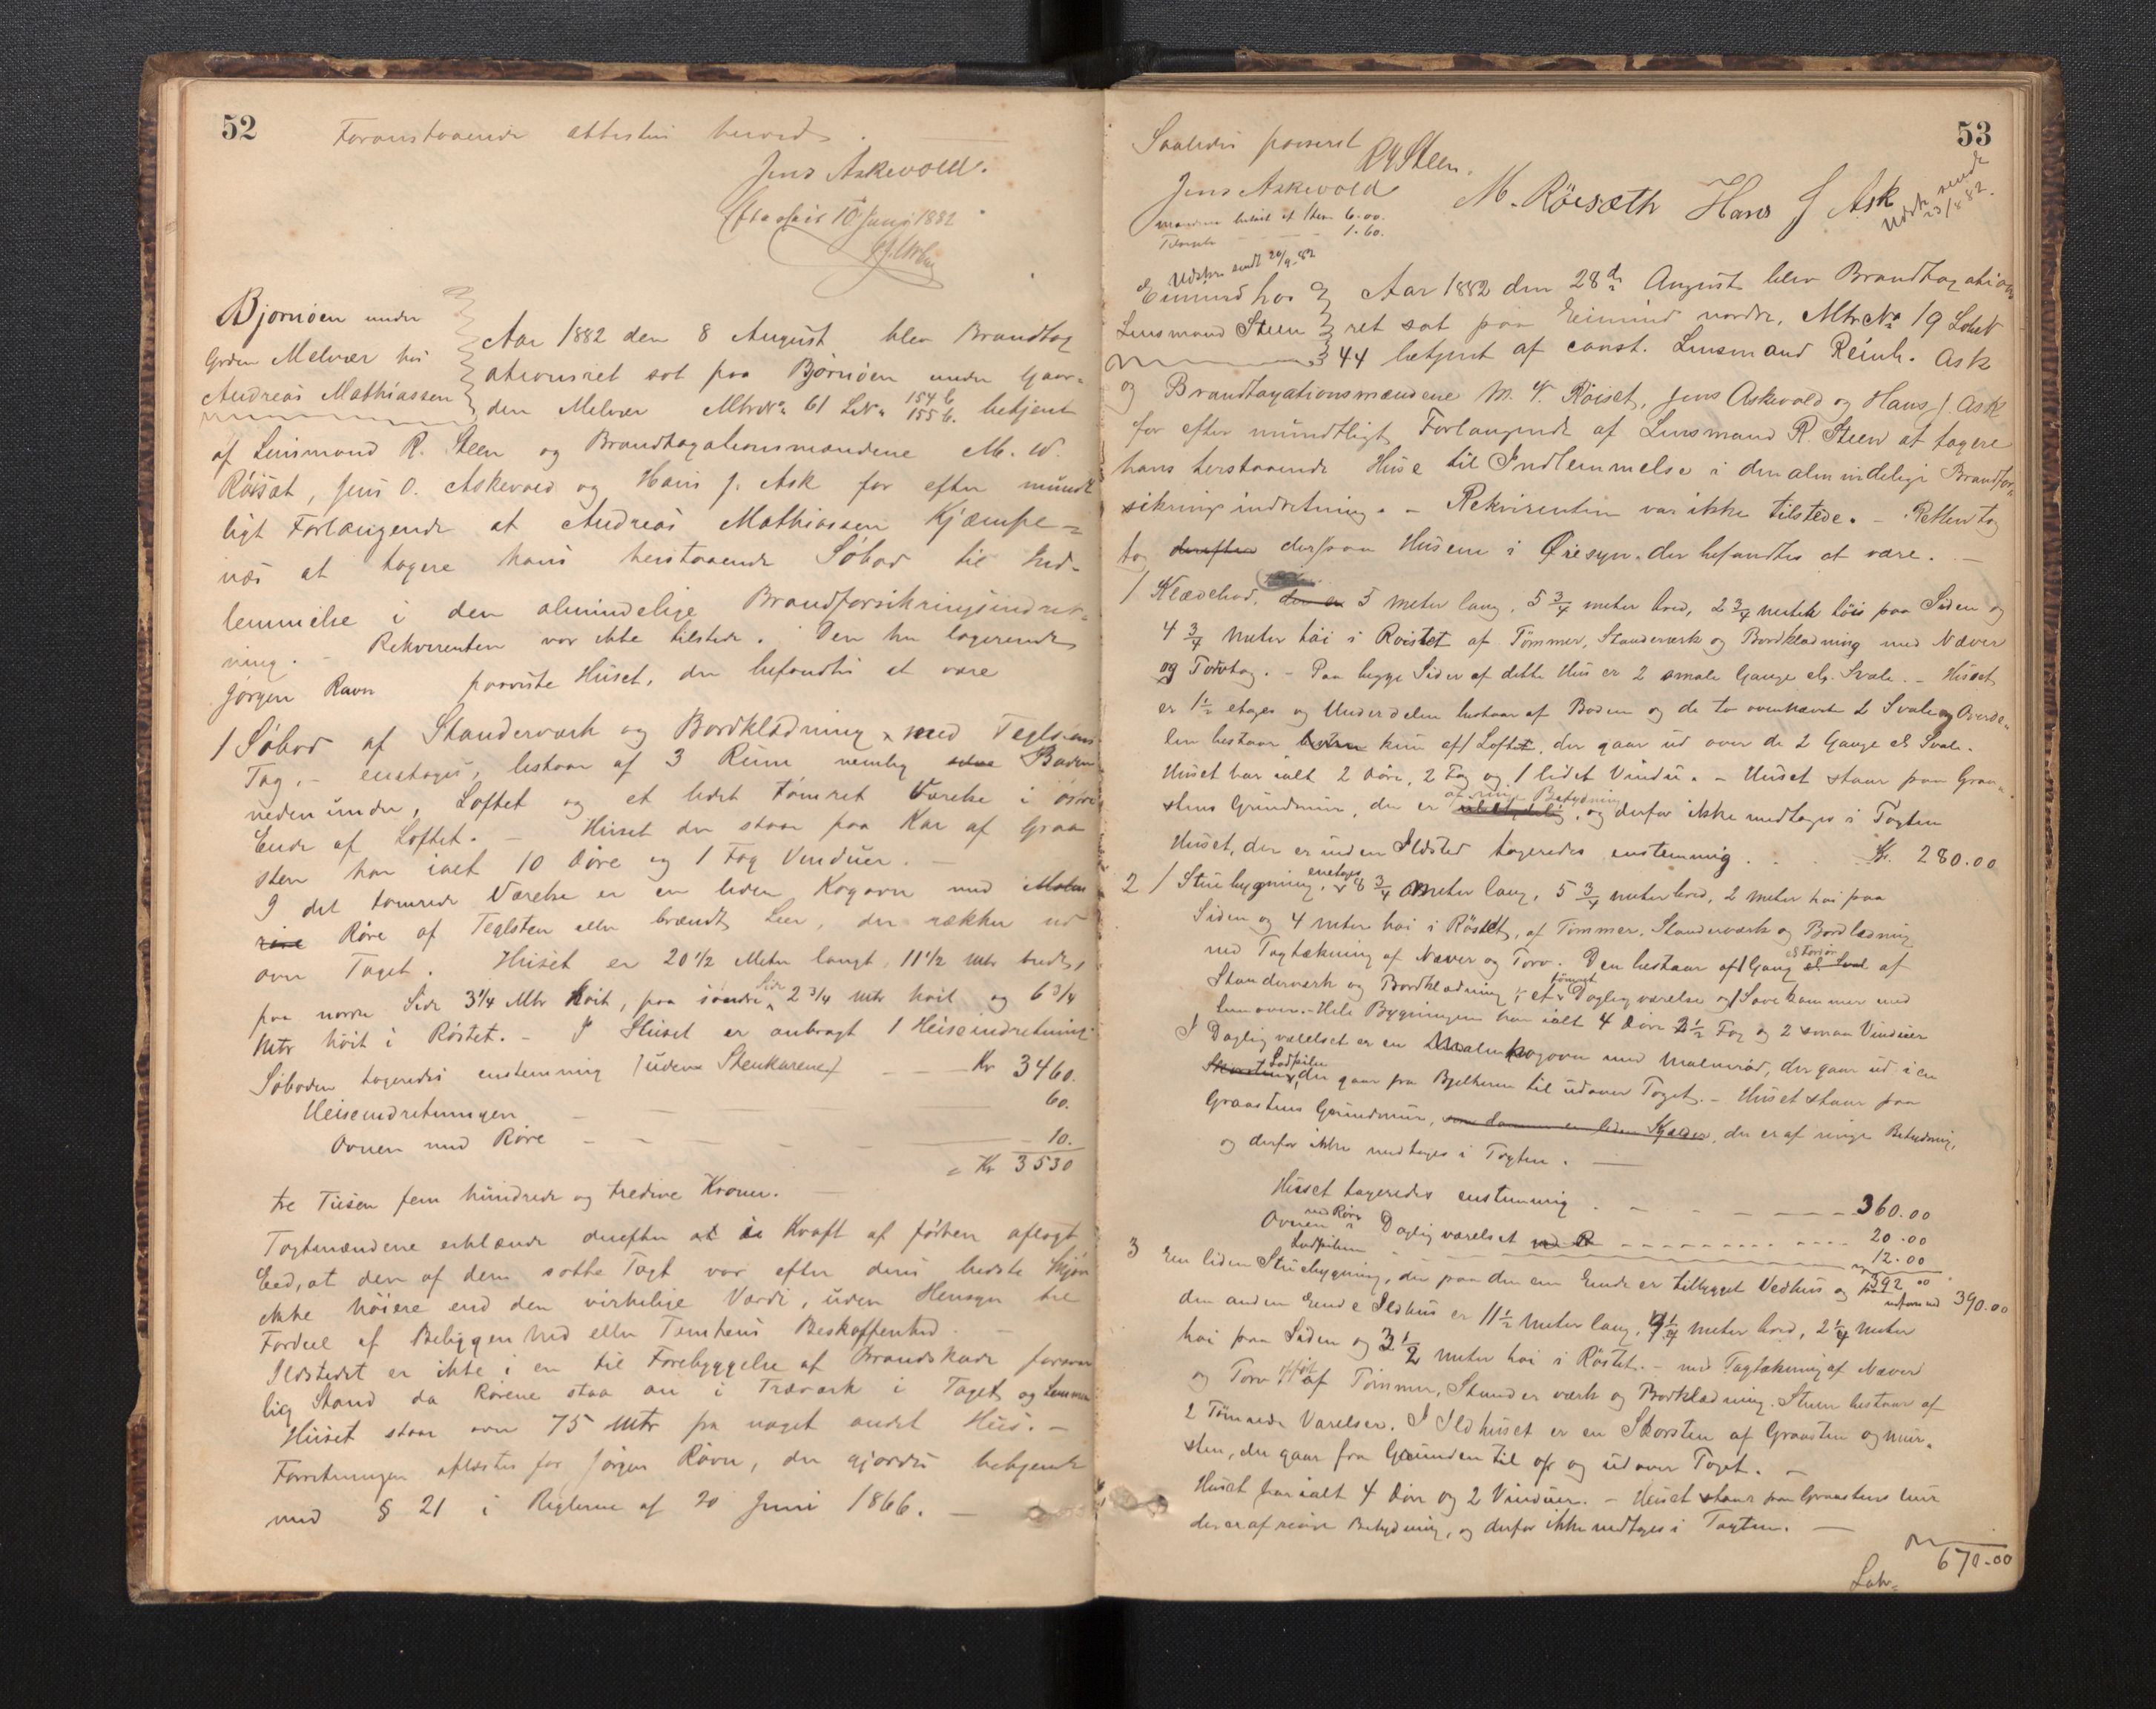 52
Foranstaaende attesteres herved.
Jens Askevold.
10 Juni 1882
Bjørnøen under
Grden Melvær hos
Andreas Mathiassen
Aar 1882 den 8 August blev Brandtax
ationsret sat paa Bjørnøen under Gaar-
den Melvær MtrNo 61 LNo 154 b 155 b. betjent
af Lensmand R. Steen og Brandtaxationsmændene M. W.
Røisæt, Jens O. Askevold og Hans J. Ask for efter mundt
ligt Forlangende at Andreas Mathiassen Kjæmpe-
næs at taxere hans herstaaende Søbod til Ind-
lemmelse i den almindelige Brandforsikringsindret-
ning. - Rekvirenten var ikke tilstede. Den her logerende
Jørgen Ravn paaviste Huset, der befandtes at være
1 Søbod af Standerværk og Bordklædning med Teglstens
Tag, - enetages, bestaar af 3 Rum nemlig Boden
nedenunder, Loftet og et lidet tømret Værelse i østre
Ende af Loftet. - Huset der staar paa Kar af Graa
sten har ialt 10 Døre og 1 Fag Vinduer. -
I det tømrede Værelse er en liden Kogovn med Malm
røre Røre af Teglsten eller brændt Leer, der rækker ud
over Taget. Huset er 20 1/2 Meter langt, 11 1/2 Mtr bredt,
paa norre Side 3 1/4 Mtr høit, paa søndre Side 2 3/4 Mtr høit og 6 3/4
Mtr høit i Røstet. - I Huset er anbragt 1 Heiseindretning.
Søboden taxeredes enstemmig (uden Stenkarene) - - Kr 3460.
Heiseindretningen - - - 60.
Ovnen med Røre - - - - - 10.
= Kr 3530
tre Tusen fem hundrede og tredive Kroner. -
Taxtmændene erklærede derefter at i Kraft afførhen aflagt
Eed, at den af dem satte Taxt var efter deres bedste Skjøn
ikke høiere end den virkelige Værdi, uden Hensyn til
Fordeel af Beliggenhed eller Tomtens Beskaffenhed. -
Ildstedet er ikke i en til Forebyggelse af Brandskade forsvar
lig Stand da Rørene staa an i Træværk i Taget og Lemmen
Huset staar over 75 Mtr fra noget andet Hus. -
Forretningen oplæstes for Jørgen Ravn, der gjordes bekjendt
med § 21 i Reglerne af 20 Juni 1866. -
53
Saaledes passeret
R Steen.
Jens Askevold M. Røisæth Hans J Ask
Udsk. sendt 23/8 82.
betalt af Steen 6.00.
1.60.
Udskr. sendt 20/9-82
Eimind hos
Lensmand Steen
Aar 1882 den 28de August blev Brandtaxations
ret sat paa Eimind nordre, Mtr No 19 LøbeN
44 betjent af const. Lensmand Reinh. Ask
og Brandtaxationsmændene M. W. Røiset, Jens Askevold og Hans J. Ask
for efter mundtligt Forlangende af Lensmand R. Steen at taxere
hans herstaaende Huse til Indlemmelse i den almindelige Brandfor-
sikringsindretning. - Rekvirenten var ikke tilstede. - Retten tog
tog derefter derpaa Husene i Øiesyn, der befandtes at være. -
1 / Klædebod, den er 5 meter lang, 5 3/4 meter bred, 2 3/4 meter høi paa Siden og
4 3/4 meter høi i Røistet af Tømmer, Standerværk og Bordklædning med Næver
og Torvtag. - Paa begge Sider af dette Hus er 2 smale Gange el. Svale. - Huset
er 1 1/2 etages og Underdelen bestaar af Boden og de to ovennævnte 2 Svale og Overde-
len bestaar kun af 1 Loft, der gaar ud over de 2 Gange el. Svale.
Huset har ialt 2 Døre, 2 Fag og 1 lidet Vindu. - Huset staar paa Graa-
stens Grundmur, der er af ringe Betydning, og derfor ikke medtages i Taxten
Huset, der er uden Ildsted taxeredes enstemmig . . . Kr. 280.00
2 / Stuebygning, enetages 8 3/4 meter lang, 5 3/4 meter bred, 2 meter høi paa
Siden og 4 meter høi i Røstet, af Tømmer, Standerværk og Bordklædning
med Tagtækning af Næver og Torv. Den bestaar af 1 Gang af
Standerværk og Bordklædning, et tømret Dagligværelse og 1 Sovekammer med
Lem over. - Hele Bygningen har ialt 4 Døre 2 1/2 Fag og 2 smaa Vinduer
I Dagligværelset er en Malmkogovn med Malmrør, der gaar ud i en
Skorsten Ludpibe, der gaar fra Bjelkerne til udover Taget. - Huset staar paa
Graastens Grundmur, som danner en liden Kjælder, der er af ringe Betydning,
og derfor ikke medtages i Taxten. -
Huset taxeredes enstemmig - - - 360.00
Ovnen med Røre i Dagligværelset - - - 20.00
Ludpiben - - - 12.00
392 00
390.00
3 En liden Stuebygning, der paa den ene Ende er tilbygget Vedhus og paa
den anden Ende Ildhus er 11 1/2 meter lang, 4 1/4 meter bred, 2 1/4 meter
høi paa Siden og 3 1/2 meter høi i Røstet. - med Tagtækning af Næver
og Torv af Tømmer, Standerværk og Bordklædning. Stuen bestaar af
2 Tømrede Værelser. I Ildhuset er en Skorsten af Graasten og Mur-
sten, der gaar fra Grunden til op og udover Taget. -
Huset har ialt 4 Døre og 2 Vinduer. - Huset staar paa Graastens Mur
der er af ringe Betydning, og derfor ikke medtages i Taxten. -
670.00
Lebr=